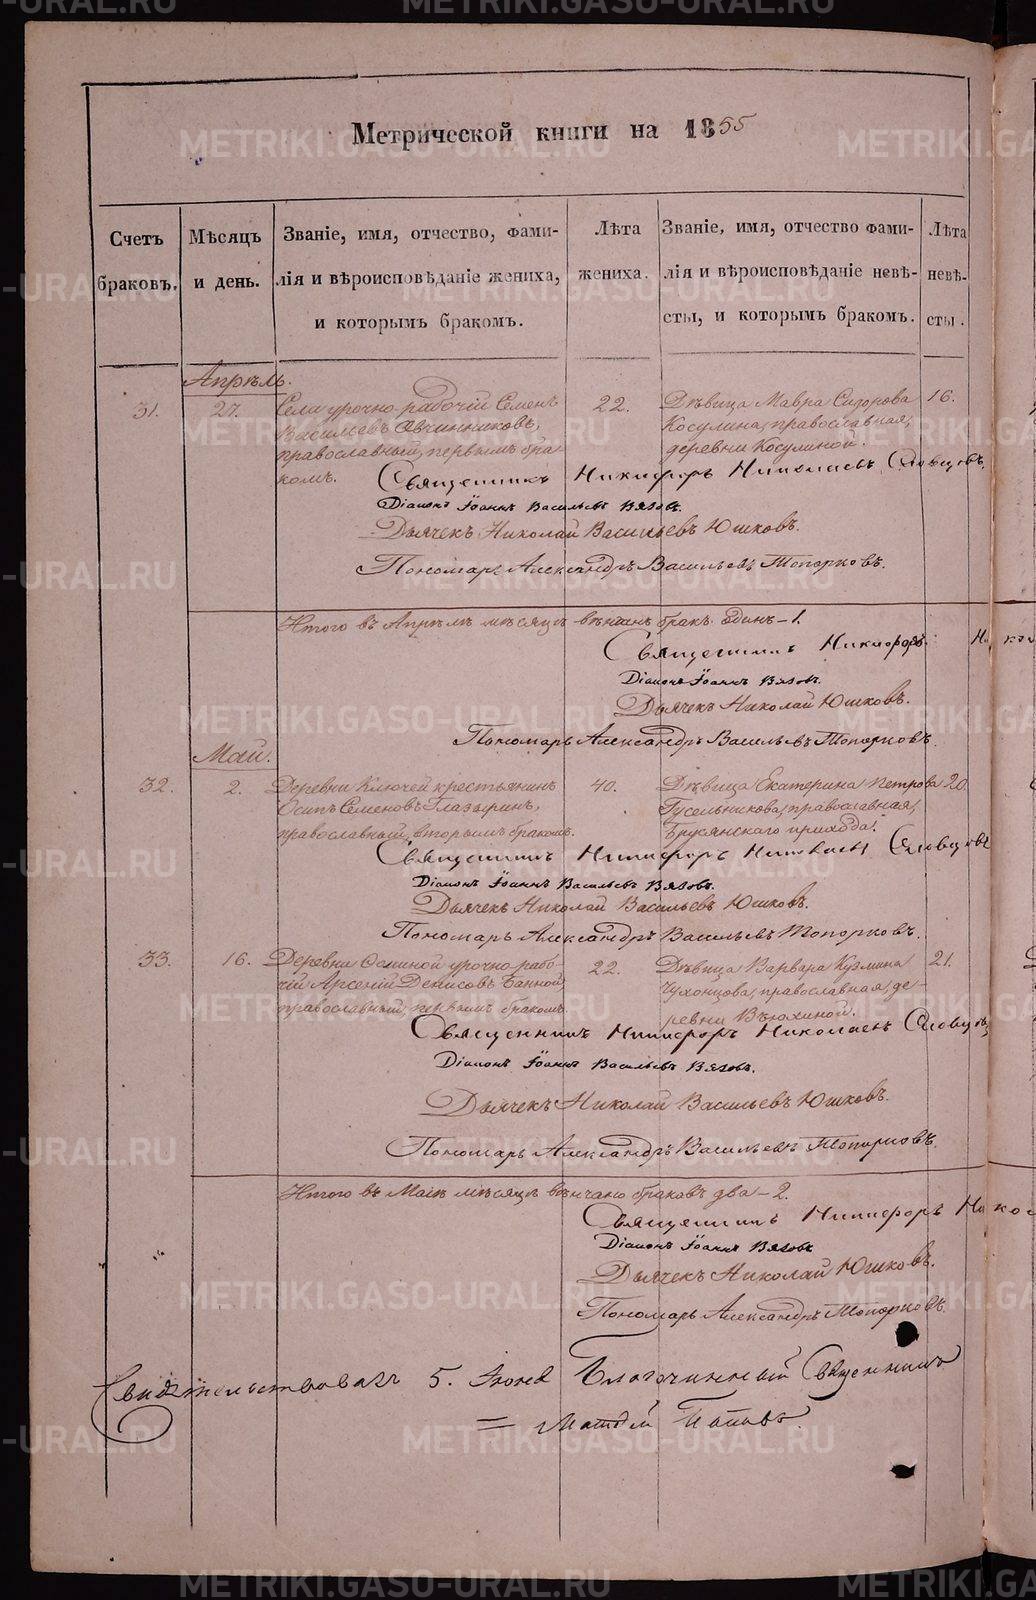 Метрической книги на 1855
Счетъ браковъ.
Мѣсяцъ и день.
Званіе, имя, отчество, фами-
лія и вѣроисповѣданіе жениха,
и которымъ бракомъ.
Лѣта жениха.
Званіе, имя, отчество фами-
лія и вѣроисповѣданіе невѣ-
сты, и которымъ бракомъ.
Лѣта невѣ-
сты.
Апрѣль.
31. 27. Села урочно-рабочій Семенъ 22. Дѣвица Мавра Сидорова 16.
Васильевъ Овчинниковъ, Косулина, православная,
православный, первымъ бра- деревни Косулиной.
комъ.
Священникъ Никифоръ Николаевъ Словцовъ.
Діаконъ Іоаннъ Васильевъ Вязовъ.
Дьячекъ Николай Васильевъ Юшковъ.
Пономарь Александръ Васильевъ Топорковъ.
Итого въ Апрѣлѣ мѣсяцѣ вѣнчанъ бракъ одинъ – 1.
Священникъ Никифоръ Нико
Діаконъ Іоаннъ Вязовъ.
Дьячекъ Николай Юшковъ.
Пономарь Александръ Васильевъ Топорковъ.
Май.
32. 2. Деревни Ключей крестьянинъ 40. Дѣвица Екатерина Петрова 20.
Осипъ Семеновъ Глазыринъ, Гусельникова, православная,
православный, вторымъ бракомъ. Брусянскаго прихода.
Священникъ Никифоръ Николаевъ Словцовъ
Діаконъ Іоаннъ Васильевъ Вязовъ.
Дьячекъ Николай Васильевъ Юшковъ.
Пономарь Александръ Васильевъ Топорковъ.
33. 16. Деревни Осиной урочно-рабо- 22. Дѣвица Варвара Кузмина 21.
чій Арсеній Денисовъ Банной, Чухонцова, православная, де-
православный, первымъ бракомъ. ревни Вьюхиной.
Священникъ Никифоръ Николаевъ Словцовъ
Діаконъ Іоаннъ Васильевъ Вязовъ.
Дьячекъ Николай Васильевъ Юшковъ.
Пономарь Александръ Васильевъ Топорковъ.
Итого въ Маѣ мѣсяцѣ вѣнчано браковъ два – 2.
Священникъ Никифоръ Никол
Діаконъ Іоаннъ Вязовъ
Дьячекъ Николай Юшковъ.
Пономарь Александръ Топорковъ.
Свидѣтельствовалъ 5. Іюня Благочинный Священникъ
= Матѳей Поповъ.
METRIKI.GASO-URAL.RU